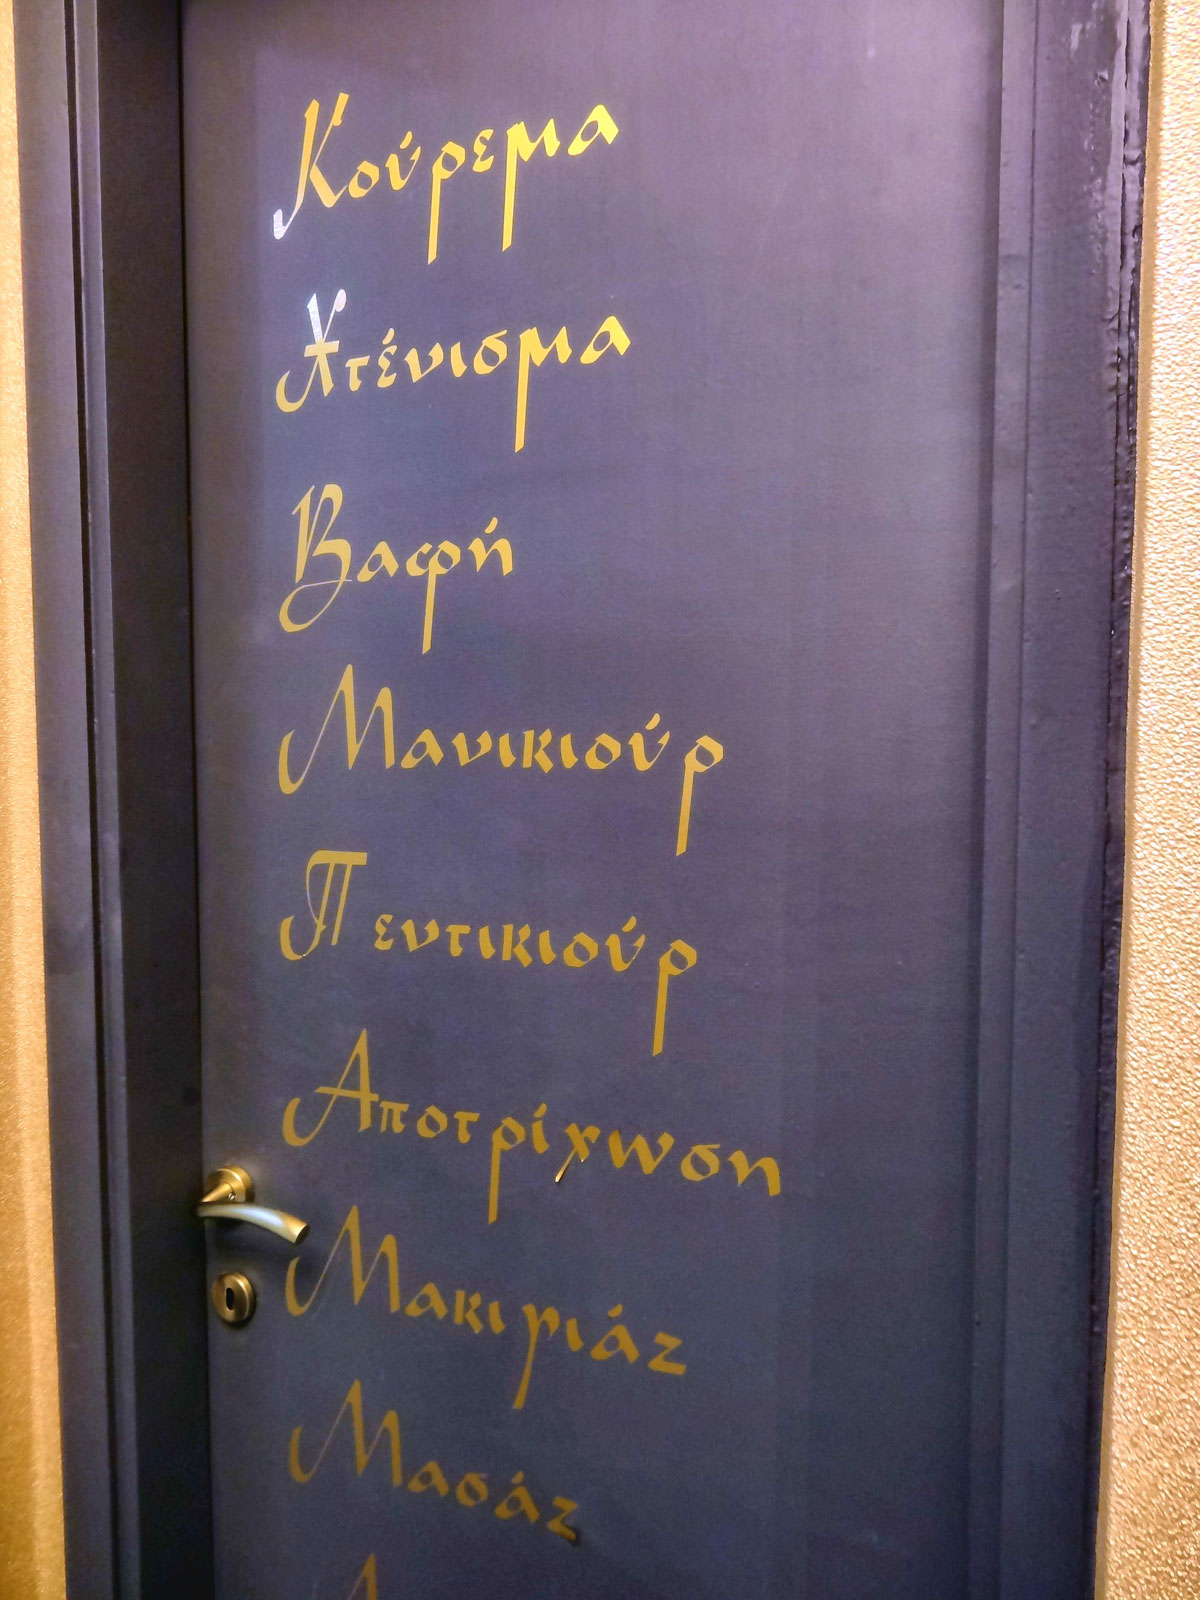 Κούρεμα
Χτένισμα
Βαφή
Μανικιούρ
Πεντικιούρ
Αποτρίχωση
Μακιγιάζ
Μασάζ